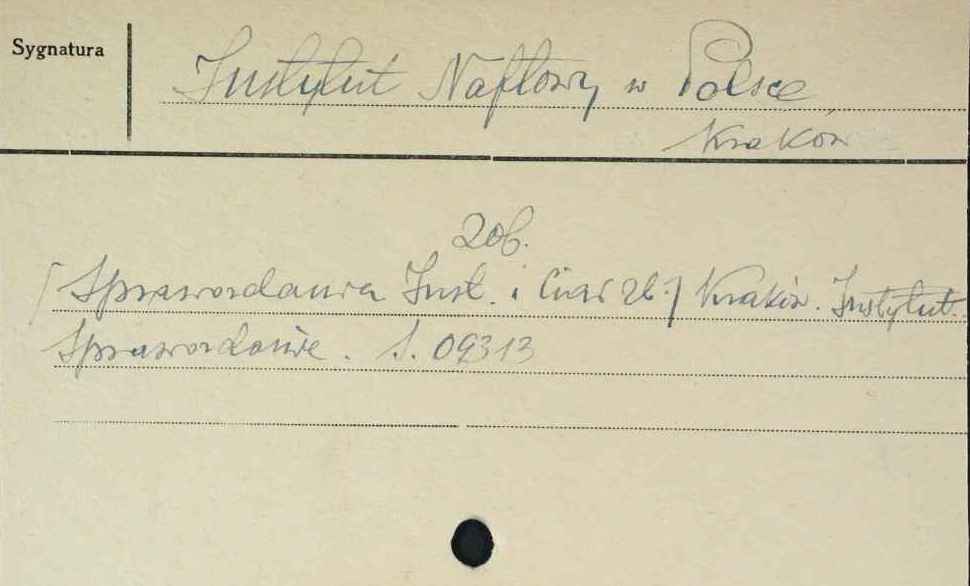 Sygnatura
Instytut Naftowy w Polsce
Kraków
Zob.
[Sprawozdania Inst. i Ciał zb.] Kraków. Instytut.
Sprawozdanie. S. 09313